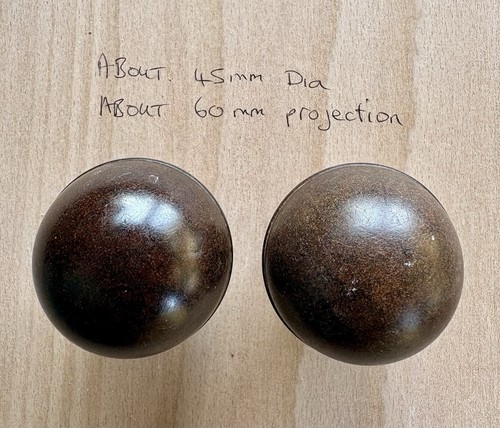 ABOUT. 45mm Dia
ABOUT 60mm projection